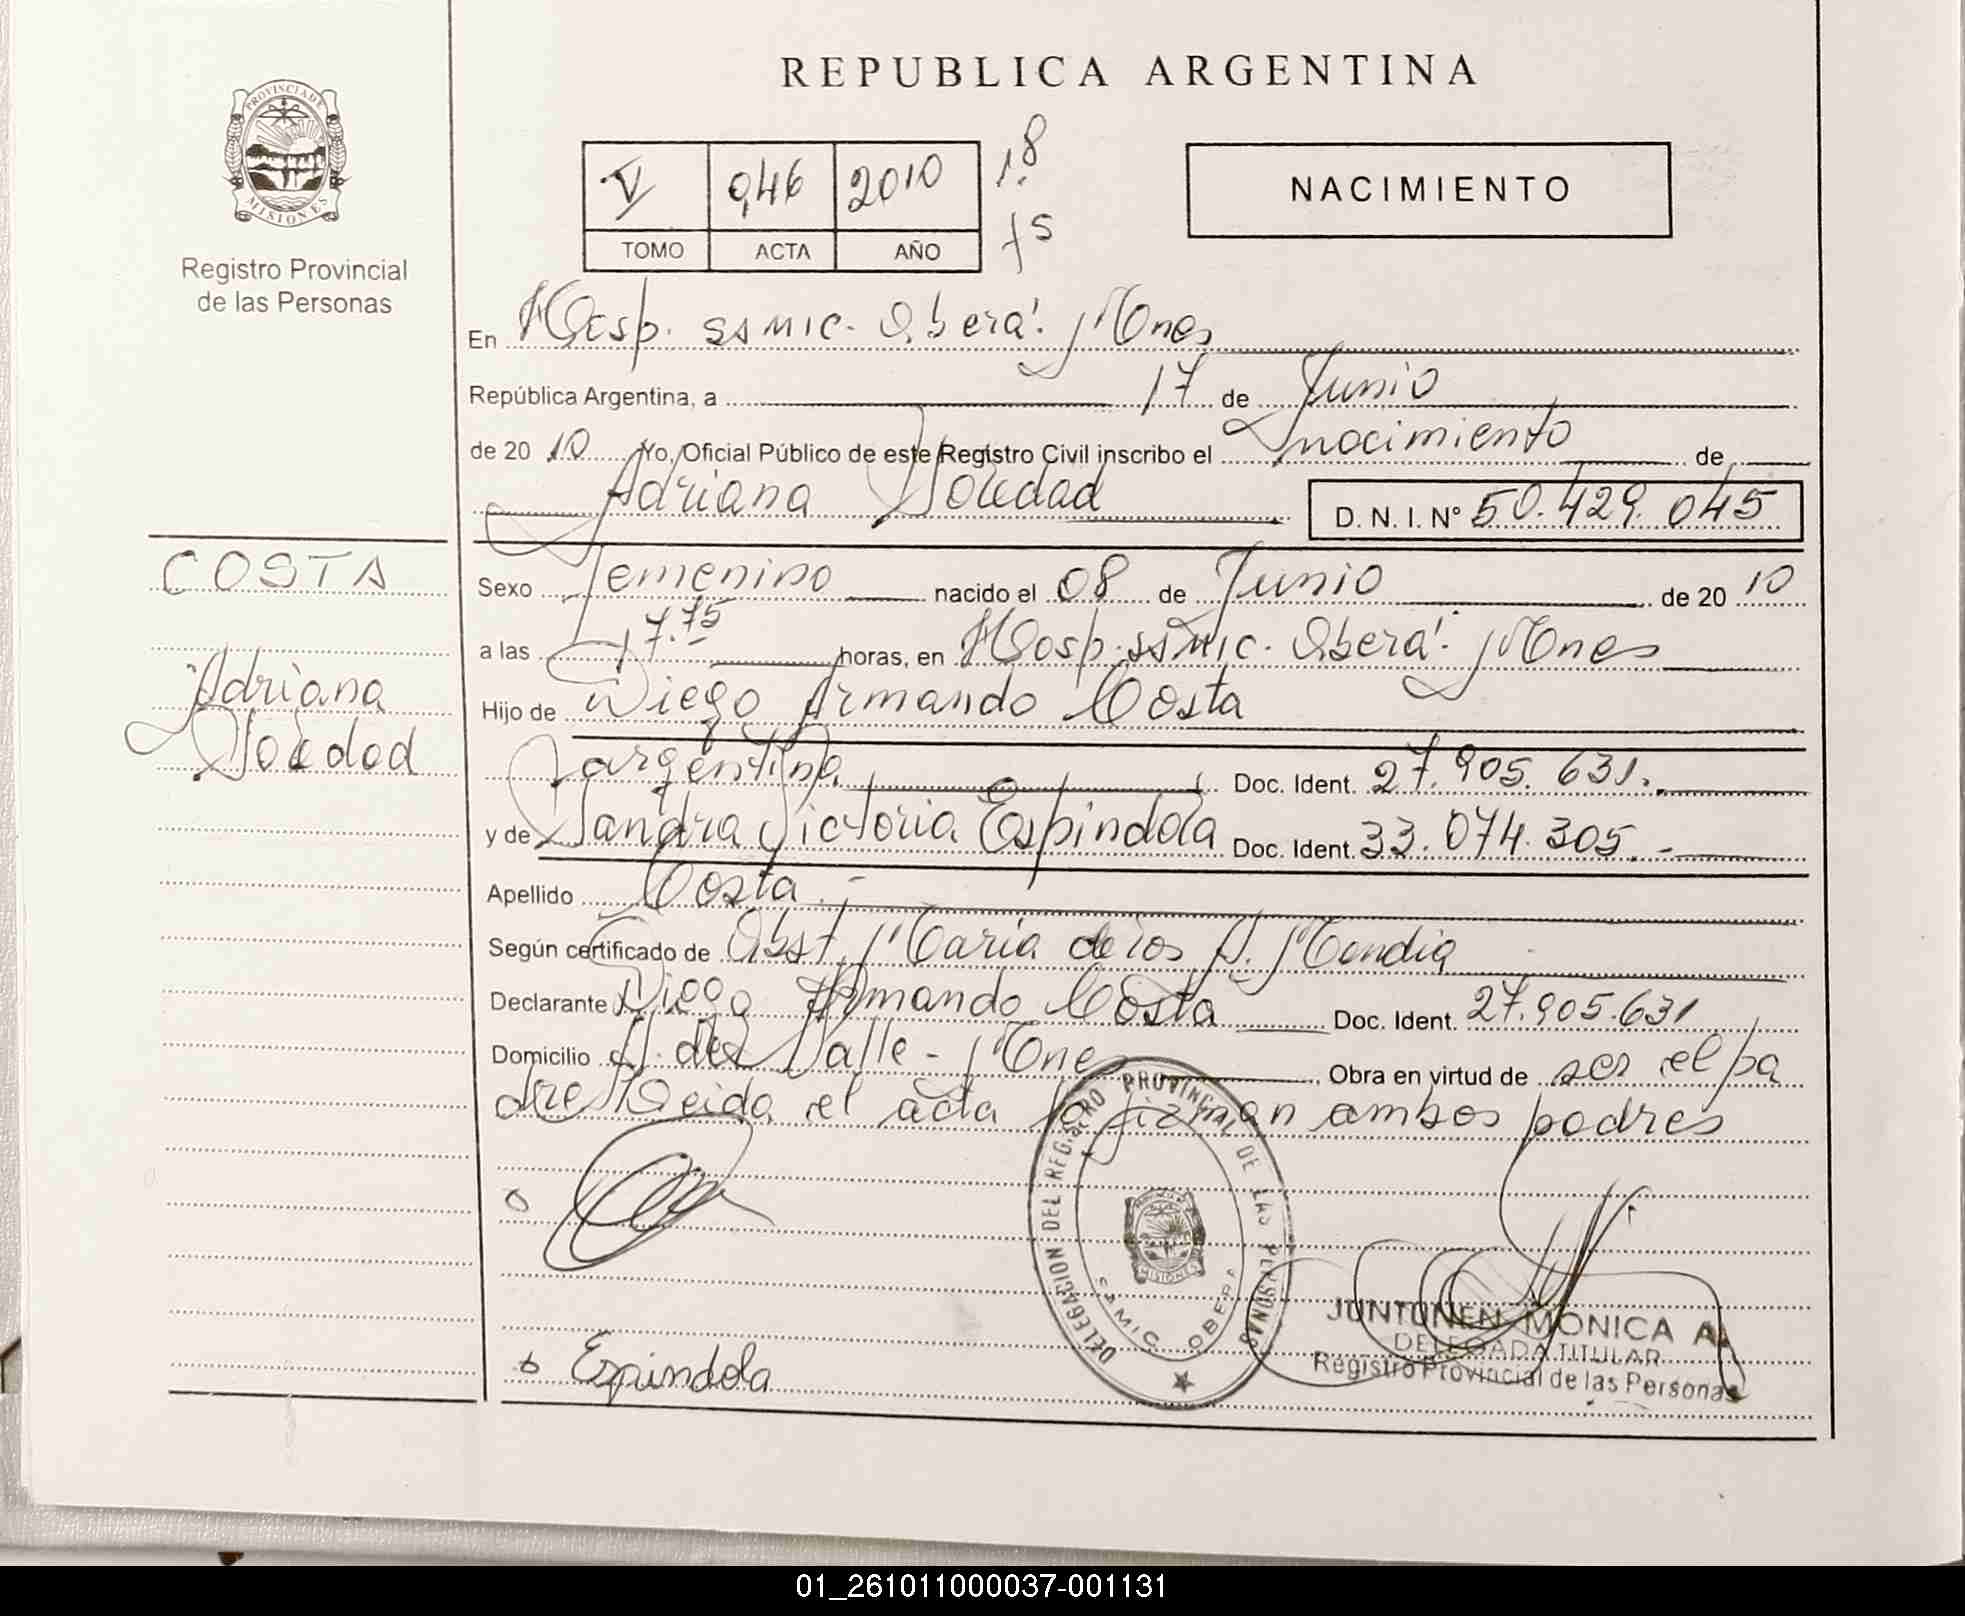 REPUBLICA ARGENTINA
PROVINCIA DE
MISIONES
Registro Provincial
de las Personas
V 946 2010
TOMO ACTA AÑO
18
75
NACIMIENTO
En Hosp. SSMIC. Oberá. Mnes
República Argentina, a 17 de Junio
de 2010 Yo, Oficial Público de este Registro Civil inscribo el nacimiento de
Adriana Soledad D.N.I. N° 50.429.045
COSTA
Adriana
Soledad
Sexo femenino nacido el 08 de Junio de 2010
a las 17.75 horas, en Hosp. SSMIC. Oberá. Mnes
Hijo de Diego Armando Costa
argentina Doc. Ident. 27.905.631.
y de Sandra Victoria Espindola Doc. Ident. 33.074.305.-
Apellido Costa.-
Según certificado de Obst. Maria de los A. Mendia
Declarante Diego Armando Costa Doc. Ident. 27.905.631
Domicilio A. del Valle - Mne Obra en virtud de ser el pa
dre Leida el acta la firman ambos padres
DELEGACION DEL REGISTRO PROVINCIAL DE LAS PERSONAS
MISIONES
SAMIC. OBERA
Espindola
JUNTUNEN MONICA A.
DELEGADA TITULAR
Registro Provincial de las Personas
01_261011000037-001131